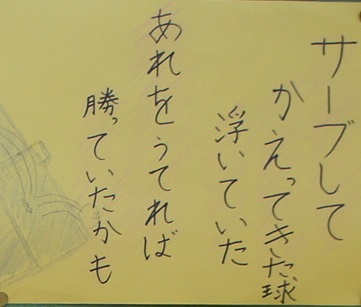 サーブして
かえってきた球
浮いていた
あれをうてれば
勝っていたかも